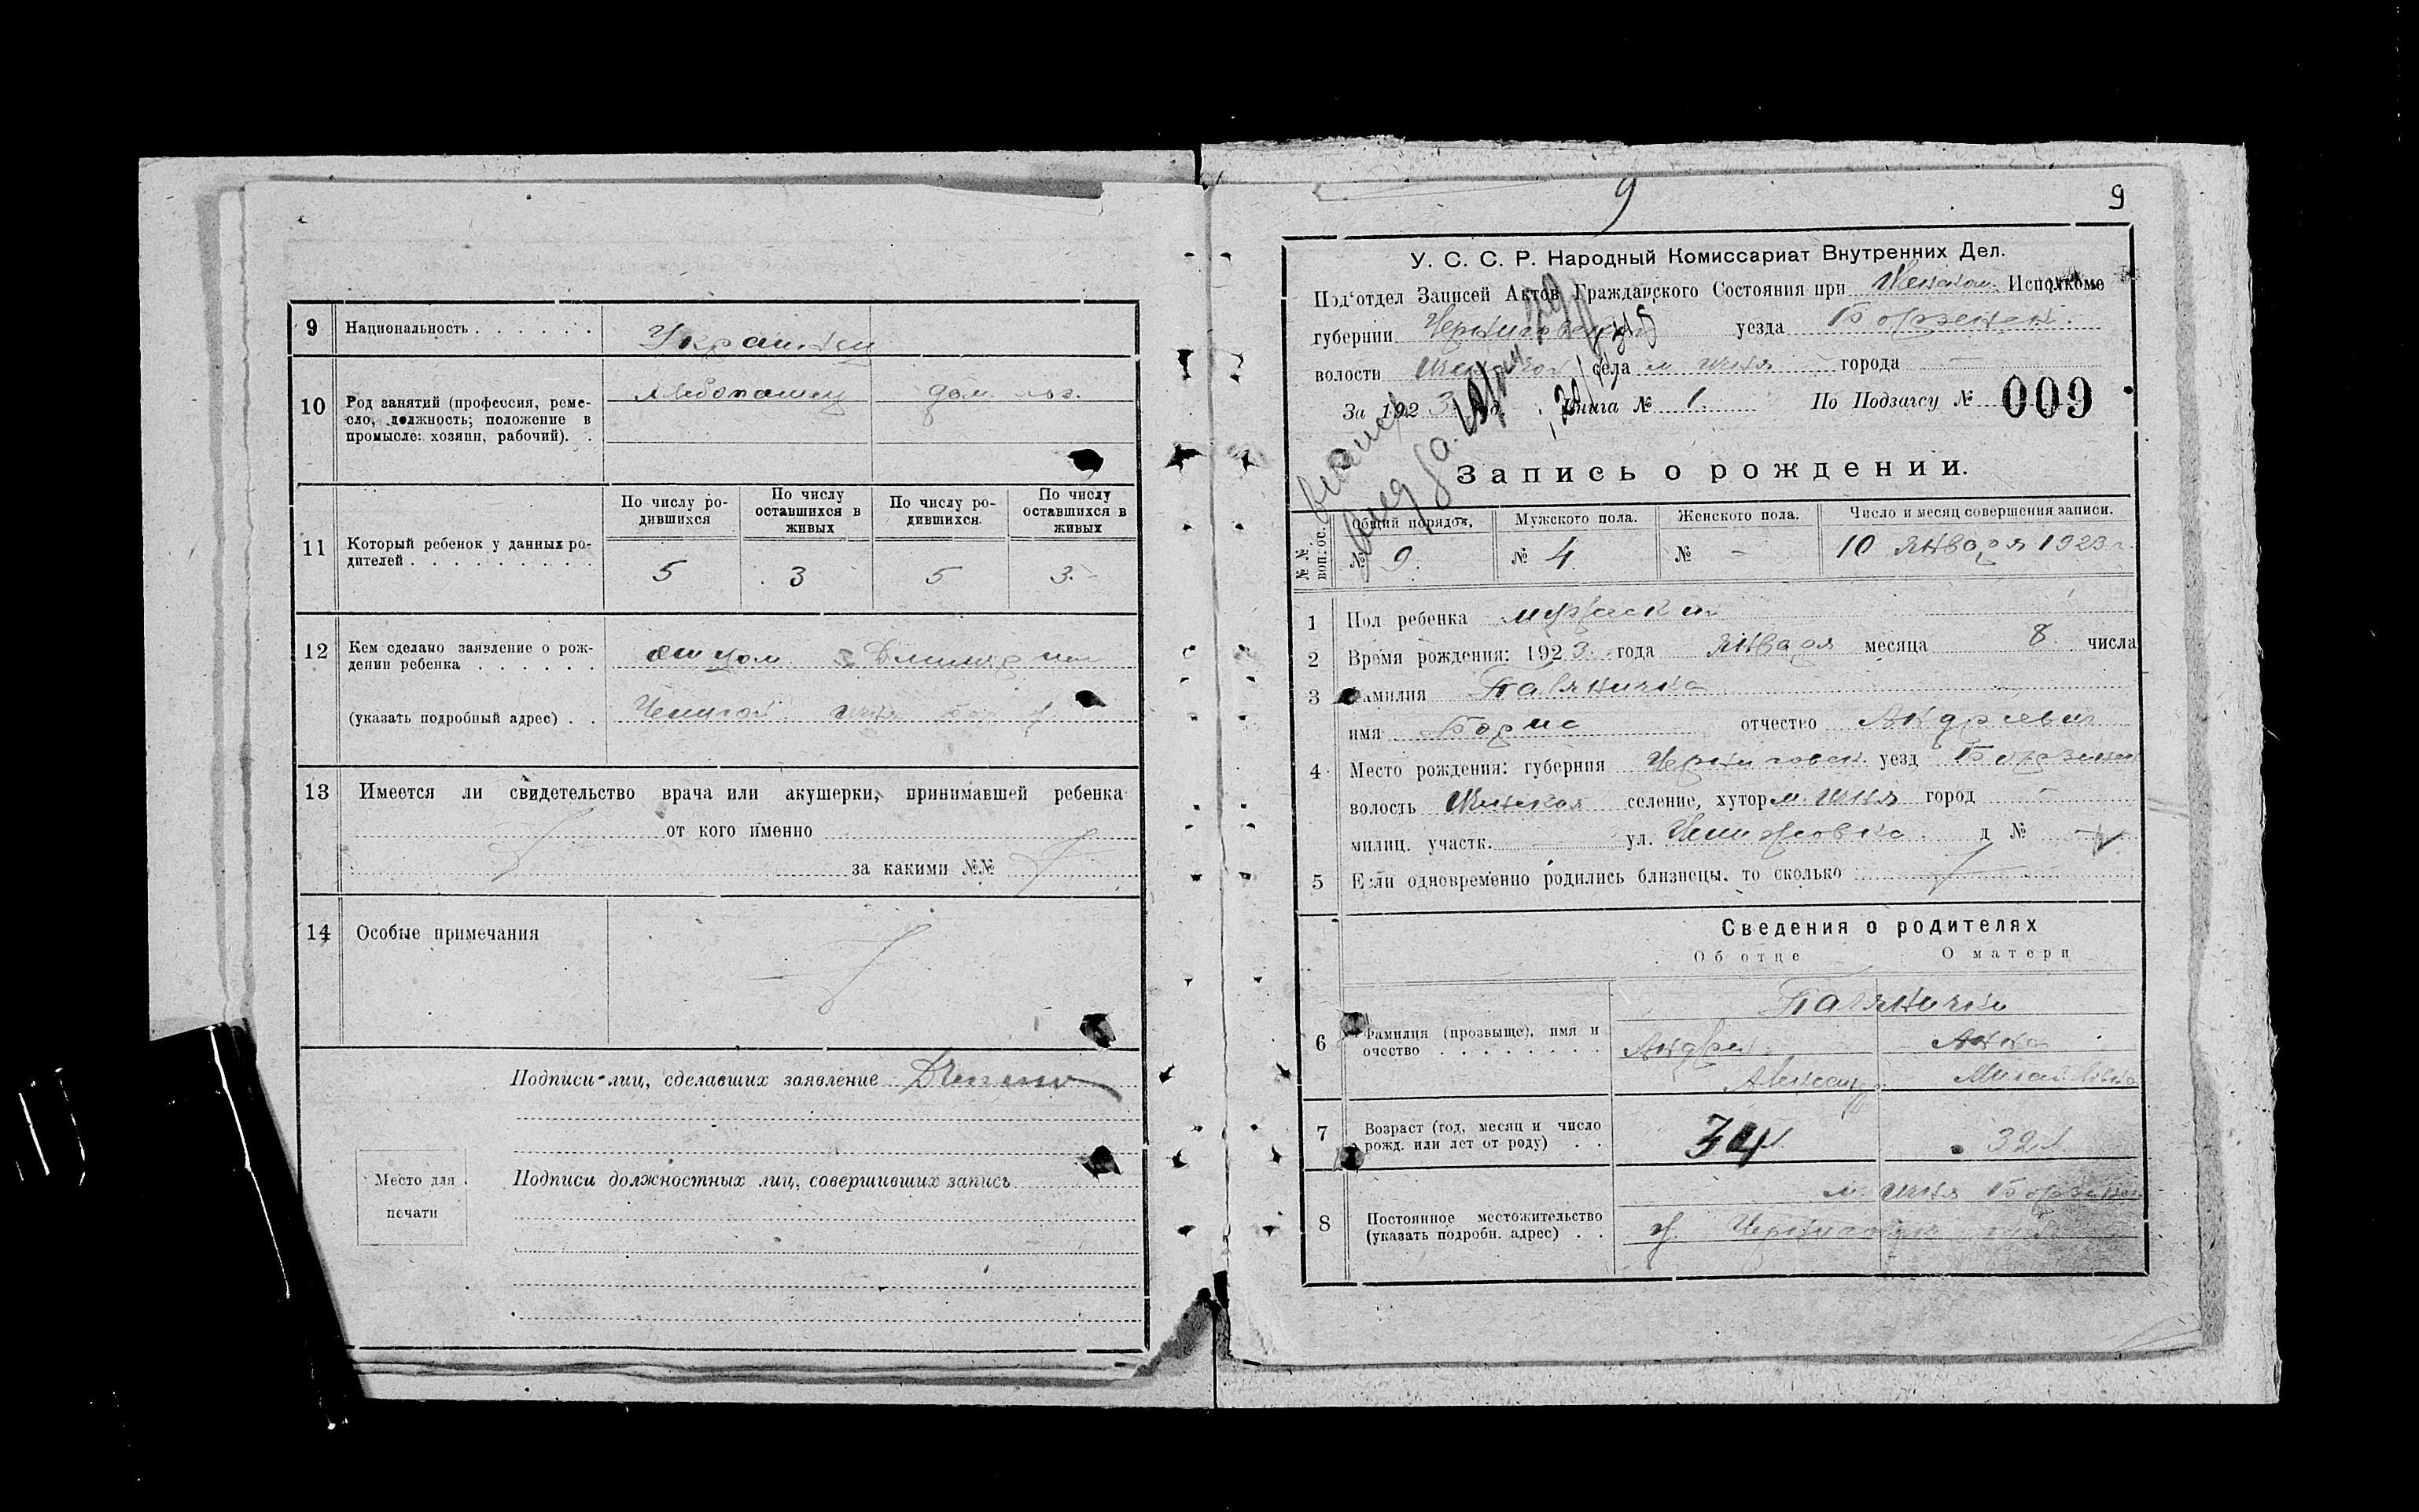 9 Национальность . . . . . .
Украинцы
10 Род занятий (профессия, реме-
сло, должность; положение в
промысле: хозяин, рабочий). .
Хлебопашец
дом. хоз.
11 Который ребенок у данных ро-
дителей . . . . . . . . .
По числу ро-
дившихся
По числу
оставшихся в
живых
По числу ро-
дившихся
По числу
оставшихся в
живых
5 3 5 3
12 Кем сделано заявление о рож-
дении ребенка . . . . . .
отцом
(указать подробный адрес) . .
13 Имеется ли свидетельство врача или акушерки, принимавшей ребенка
от кого именно
за какими №№
14 Особые примечания
Подписи лиц, сделавших заявление
Место для
печати
Подписи должностных лиц, совершивших запись
9 9
У. С. С. Р. Народный Комиссариат Внутренних Дел.
Под‘отдел Записей Актов Гражданского Состояния при Исполкоме
губернии Черниговской уезда Борзенск.
волости села м. Ичня города —
За 1923 Книга № 1. По Подзагсу № 009
Запись о рождении.
№ №
воп. ос.
Общий порядок. Мужского пола. Женского пола. Число и месяц совершения записи.
№ 9. № 4 № - 10 января 1923 г.
1 Пол ребенка мужской
2 Время рождения: 1923 года января месяца 8. числа
3 Фамилия Павяничко
имя Борис отчество Андреевич
4 Место рождения: губерния Черниговск. уезд Борзенск
волость селение, хутор м. Ичня город -
милиц. участк. — ул. д № —
5 Если одновременно родились близнецы, то сколько
Сведения о родителях
Об отце О матери
6 Фамилия (прозвыще), имя и
очество . . . . . . . .
Андрей Анна
Александр. Михайловна
7 Возраст (год, месяц и число
рожд. или лет от роду) . .
34 32 л
8 Постоянное местожительство
(указать подробн. адрес) . .
м. Ичня Борзенск
у. Черниговск